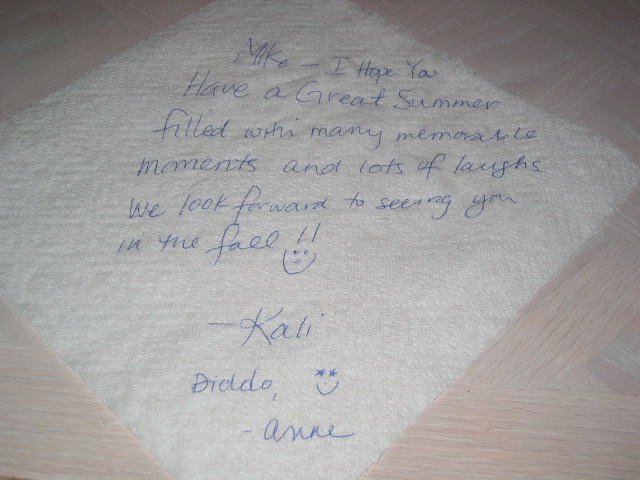 Mike - I Hope You
Have a Great Summer
filled with many memorable
moments and lots of laughs
We look forward to seeing you
in the fall !!
- Kali
Diddo,
- anne